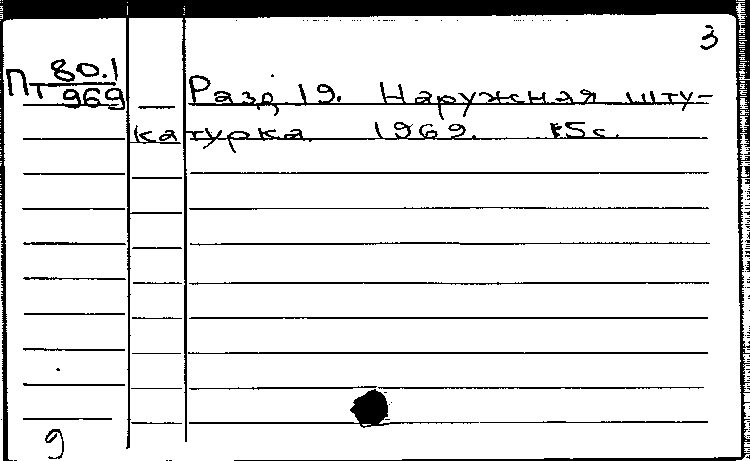 3
Пт 80.1
969
— Разд. 19. Наружная шту-
катурка. 1969. 15 с.
9